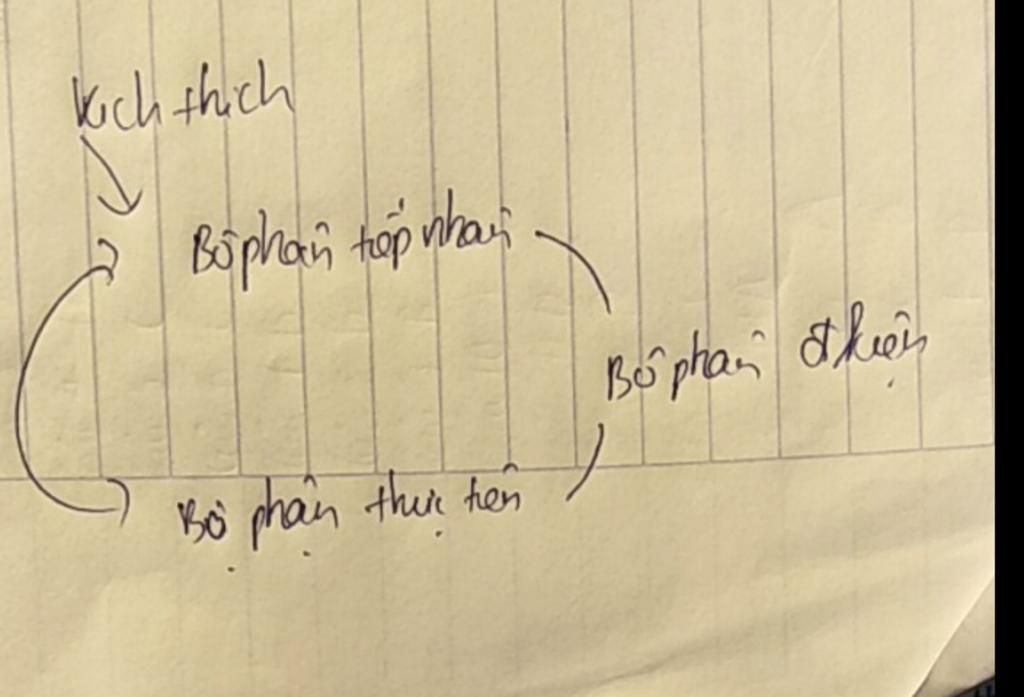 Kich thich
Bộ phận tiếp nhận
Bộ phận đ kiện
Bộ phận thực tiên